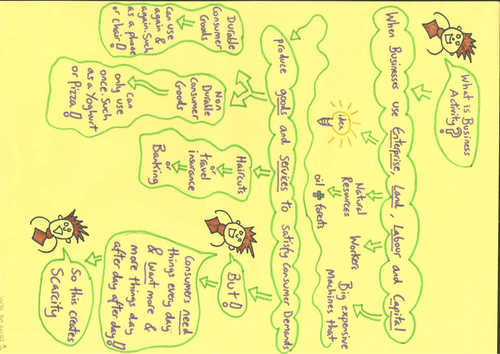 What is Business
Activity?
When Businesses use Enterprise, Land, Labour and Capital
idea
Natural
Resources
oil + forests
Workers
Big expensive
machines that
produce goods and services to satisfy Consumer Demands
Durable
Consumer
Goods
Can use
again &
again. Such
as a phone
or chair!
Non
Durable
Consumer
Goods
Can
only use
once. Such
as a Yoghurt
or Pizza!
Haircuts
or
travel
insurance
or
Banking
But!
Consumers need
things every day
& want more &
more things day
after day after day!
So this creates
Scarcity